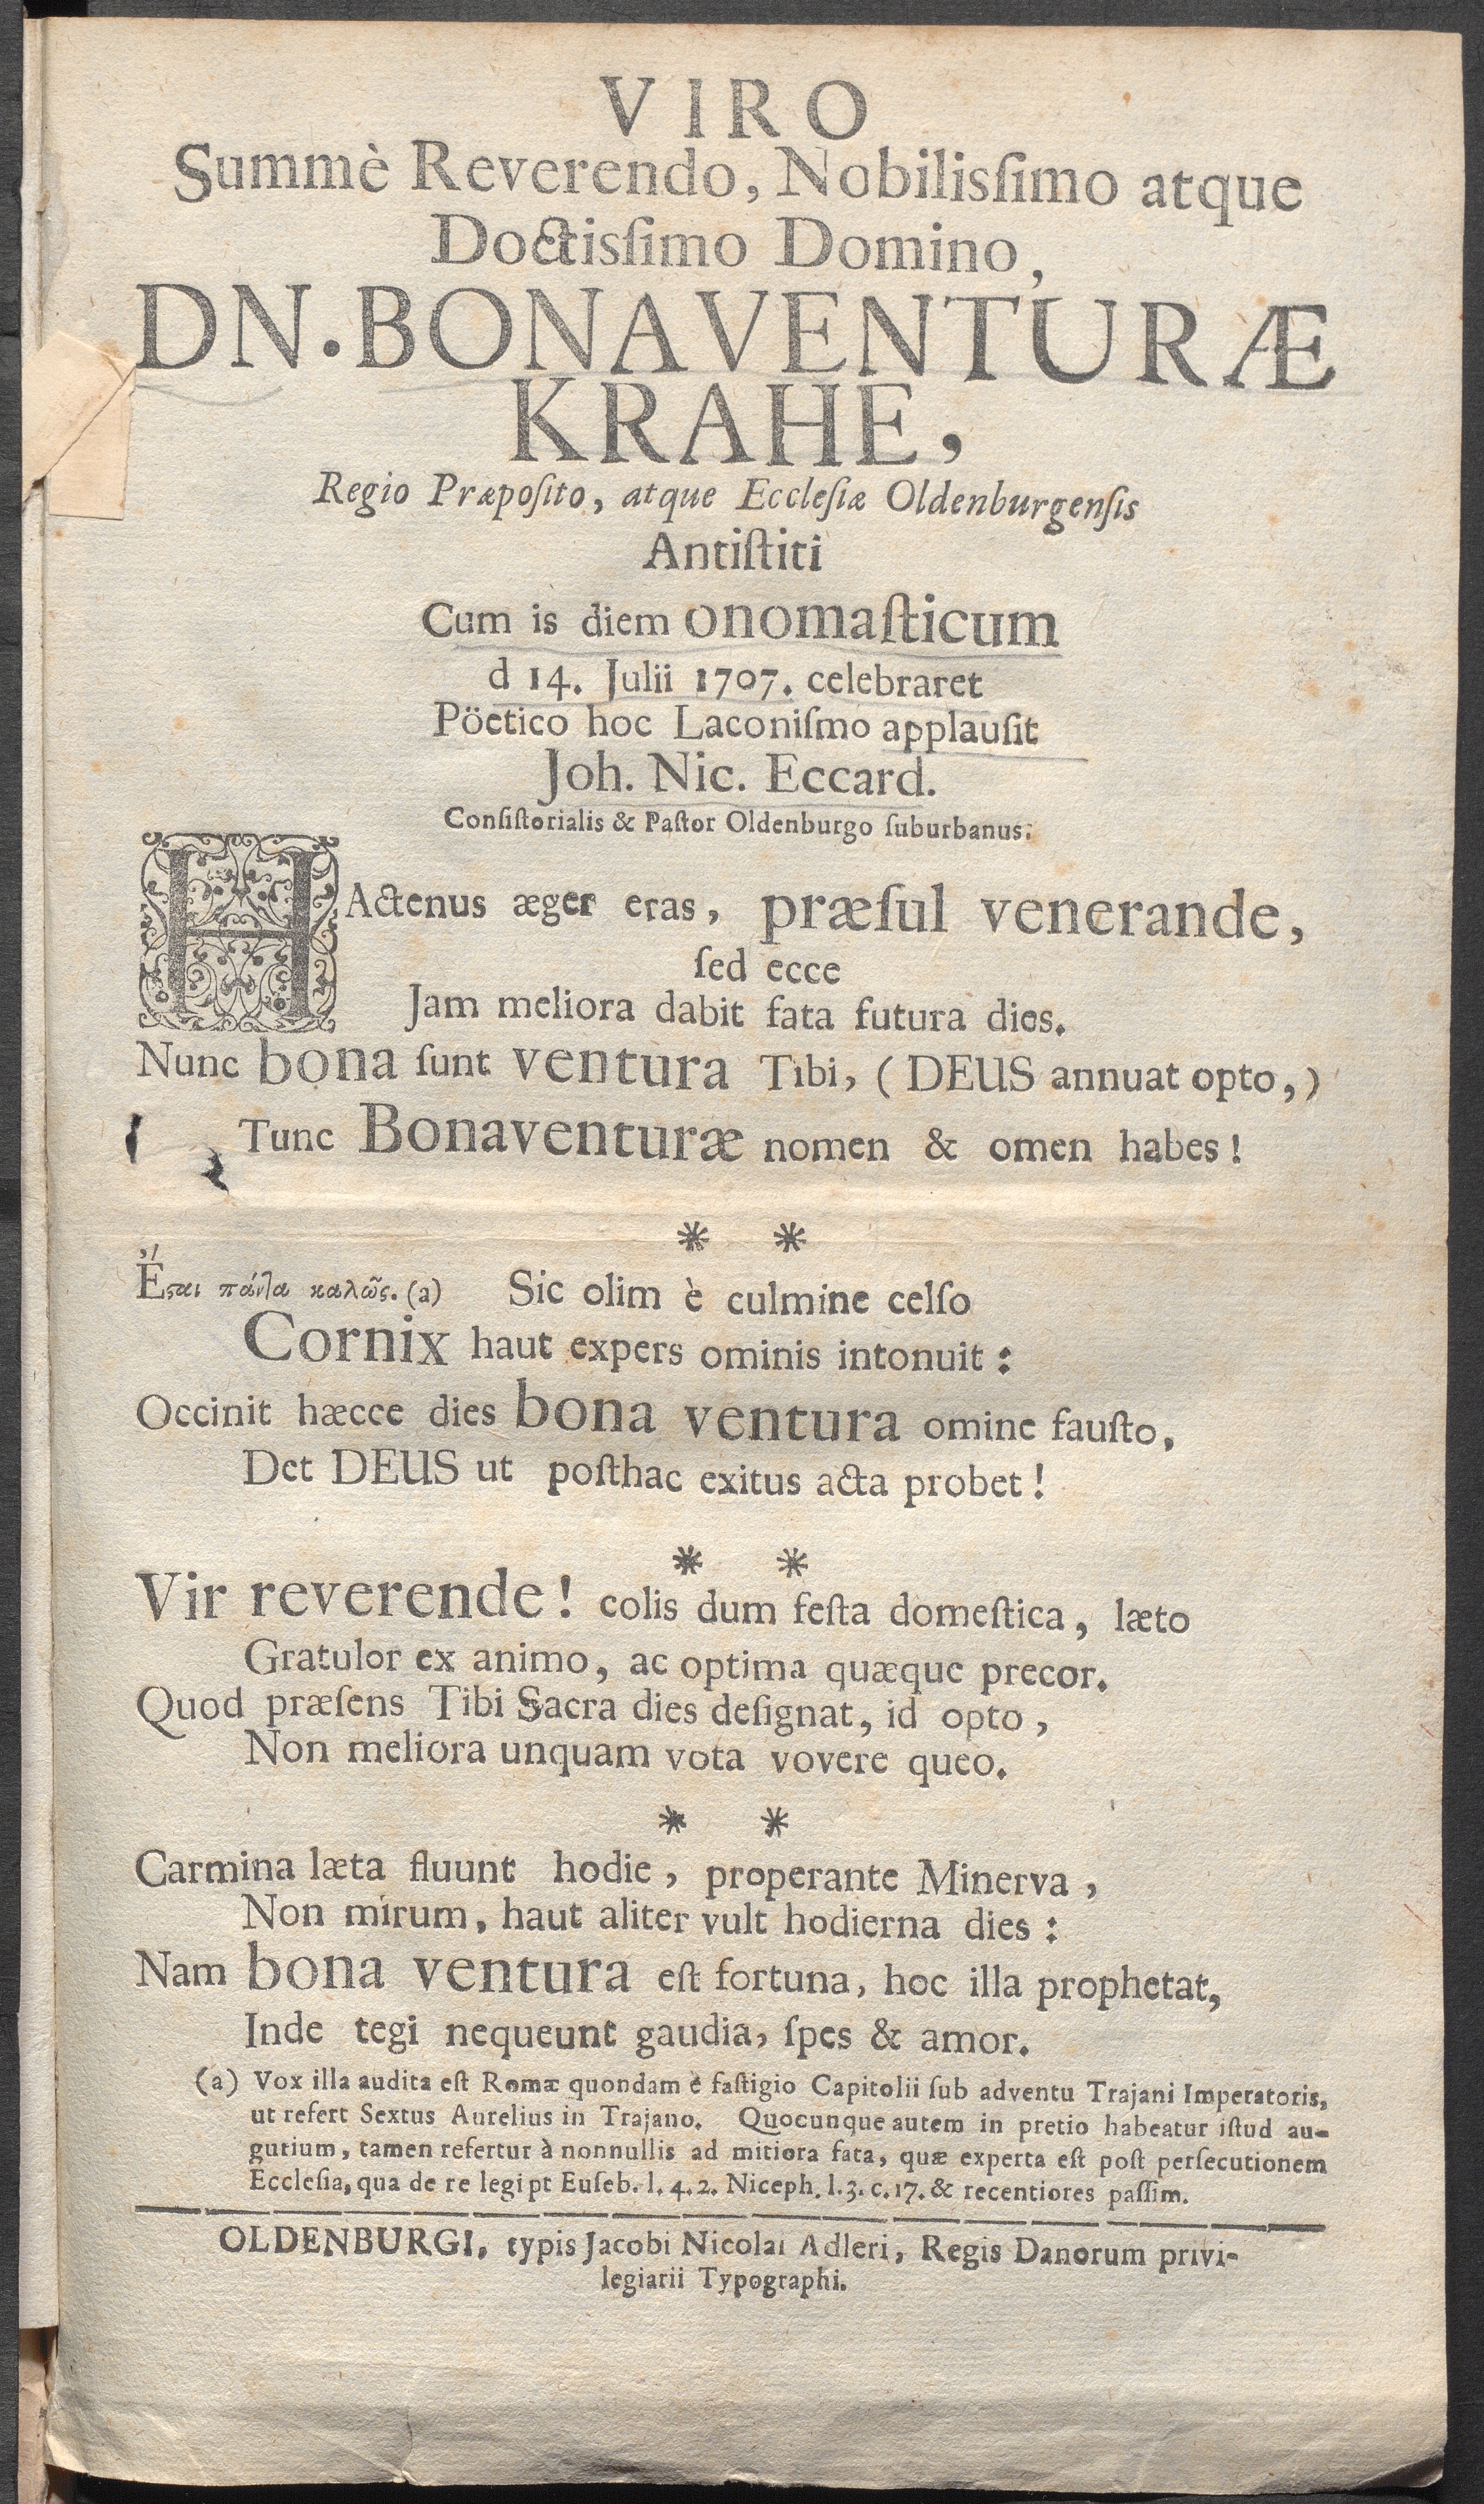 VIRO
Summè Reverendo, Nobilisſimo atque
Doctisſimo Domino,
DN. BONAVENTURÆ
KRAHE,
Regio Præpoſito, atque Eccleſiæ Oldenburgenſis
Antiſtiti
Cum is diem onomaſticum
d 14. Julii 1707. celebraret
Pöetico hoc Laconiſmo applauſit
Joh. Nic. Eccard.
Conſiſtorialis & Paſtor Oldenburgo ſuburbanus.
HActenus æger eras, præſul venerande,
ſed ecce
Jam meliora dabit fata futura dies.
Nunc bona ſunt ventura Tibi, (DEUS annuat opto,)
Tunc Bonaventuræ nomen & omen habes!
* *
Ἔϛαι πάντα καλῶς. (a) Sic olim è culmine celſo
Cornix haut expers ominis intonuit:
Occinit hæcce dies bona ventura omine fauſto,
Det DEUS ut poſthac exitus acta probet!
* *
Vir reverende! colis dum feſta domeſtica, læto
Gratulor ex animo, ac optima quæque precor.
Quod præſens Tibi Sacra dies deſignat, id opto,
Non meliora unquam vota vovere queo.
* *
Carmina læta fluunt hodie, properante Minerva,
Non mirum, haut aliter vult hodierna dies:
Nam bona ventura eſt fortuna, hoc illa prophetat,
Inde tegi nequeunt gaudia, ſpes & amor.
(a) Vox illa audita eſt Romæ quondam è faſtigio Capitolii ſub adventu Trajani Imperatoris,
ut refert Sextus Aurelius in Trajano. Quocunque autem in pretio habeatur iſtud au-
gurium, tamen refertur à nonnullis ad mitiora fata, quæ experta eſt poſt perſecutionem
Eccleſia, qua de re legi pt Euſeb. l. 4. 2. Niceph. l. 3. c. 17. & recentiores paſſim.
OLDENBURGI, typis Jacobi Nicolai Adleri, Regis Danorum privi-
legiarii Typographi.